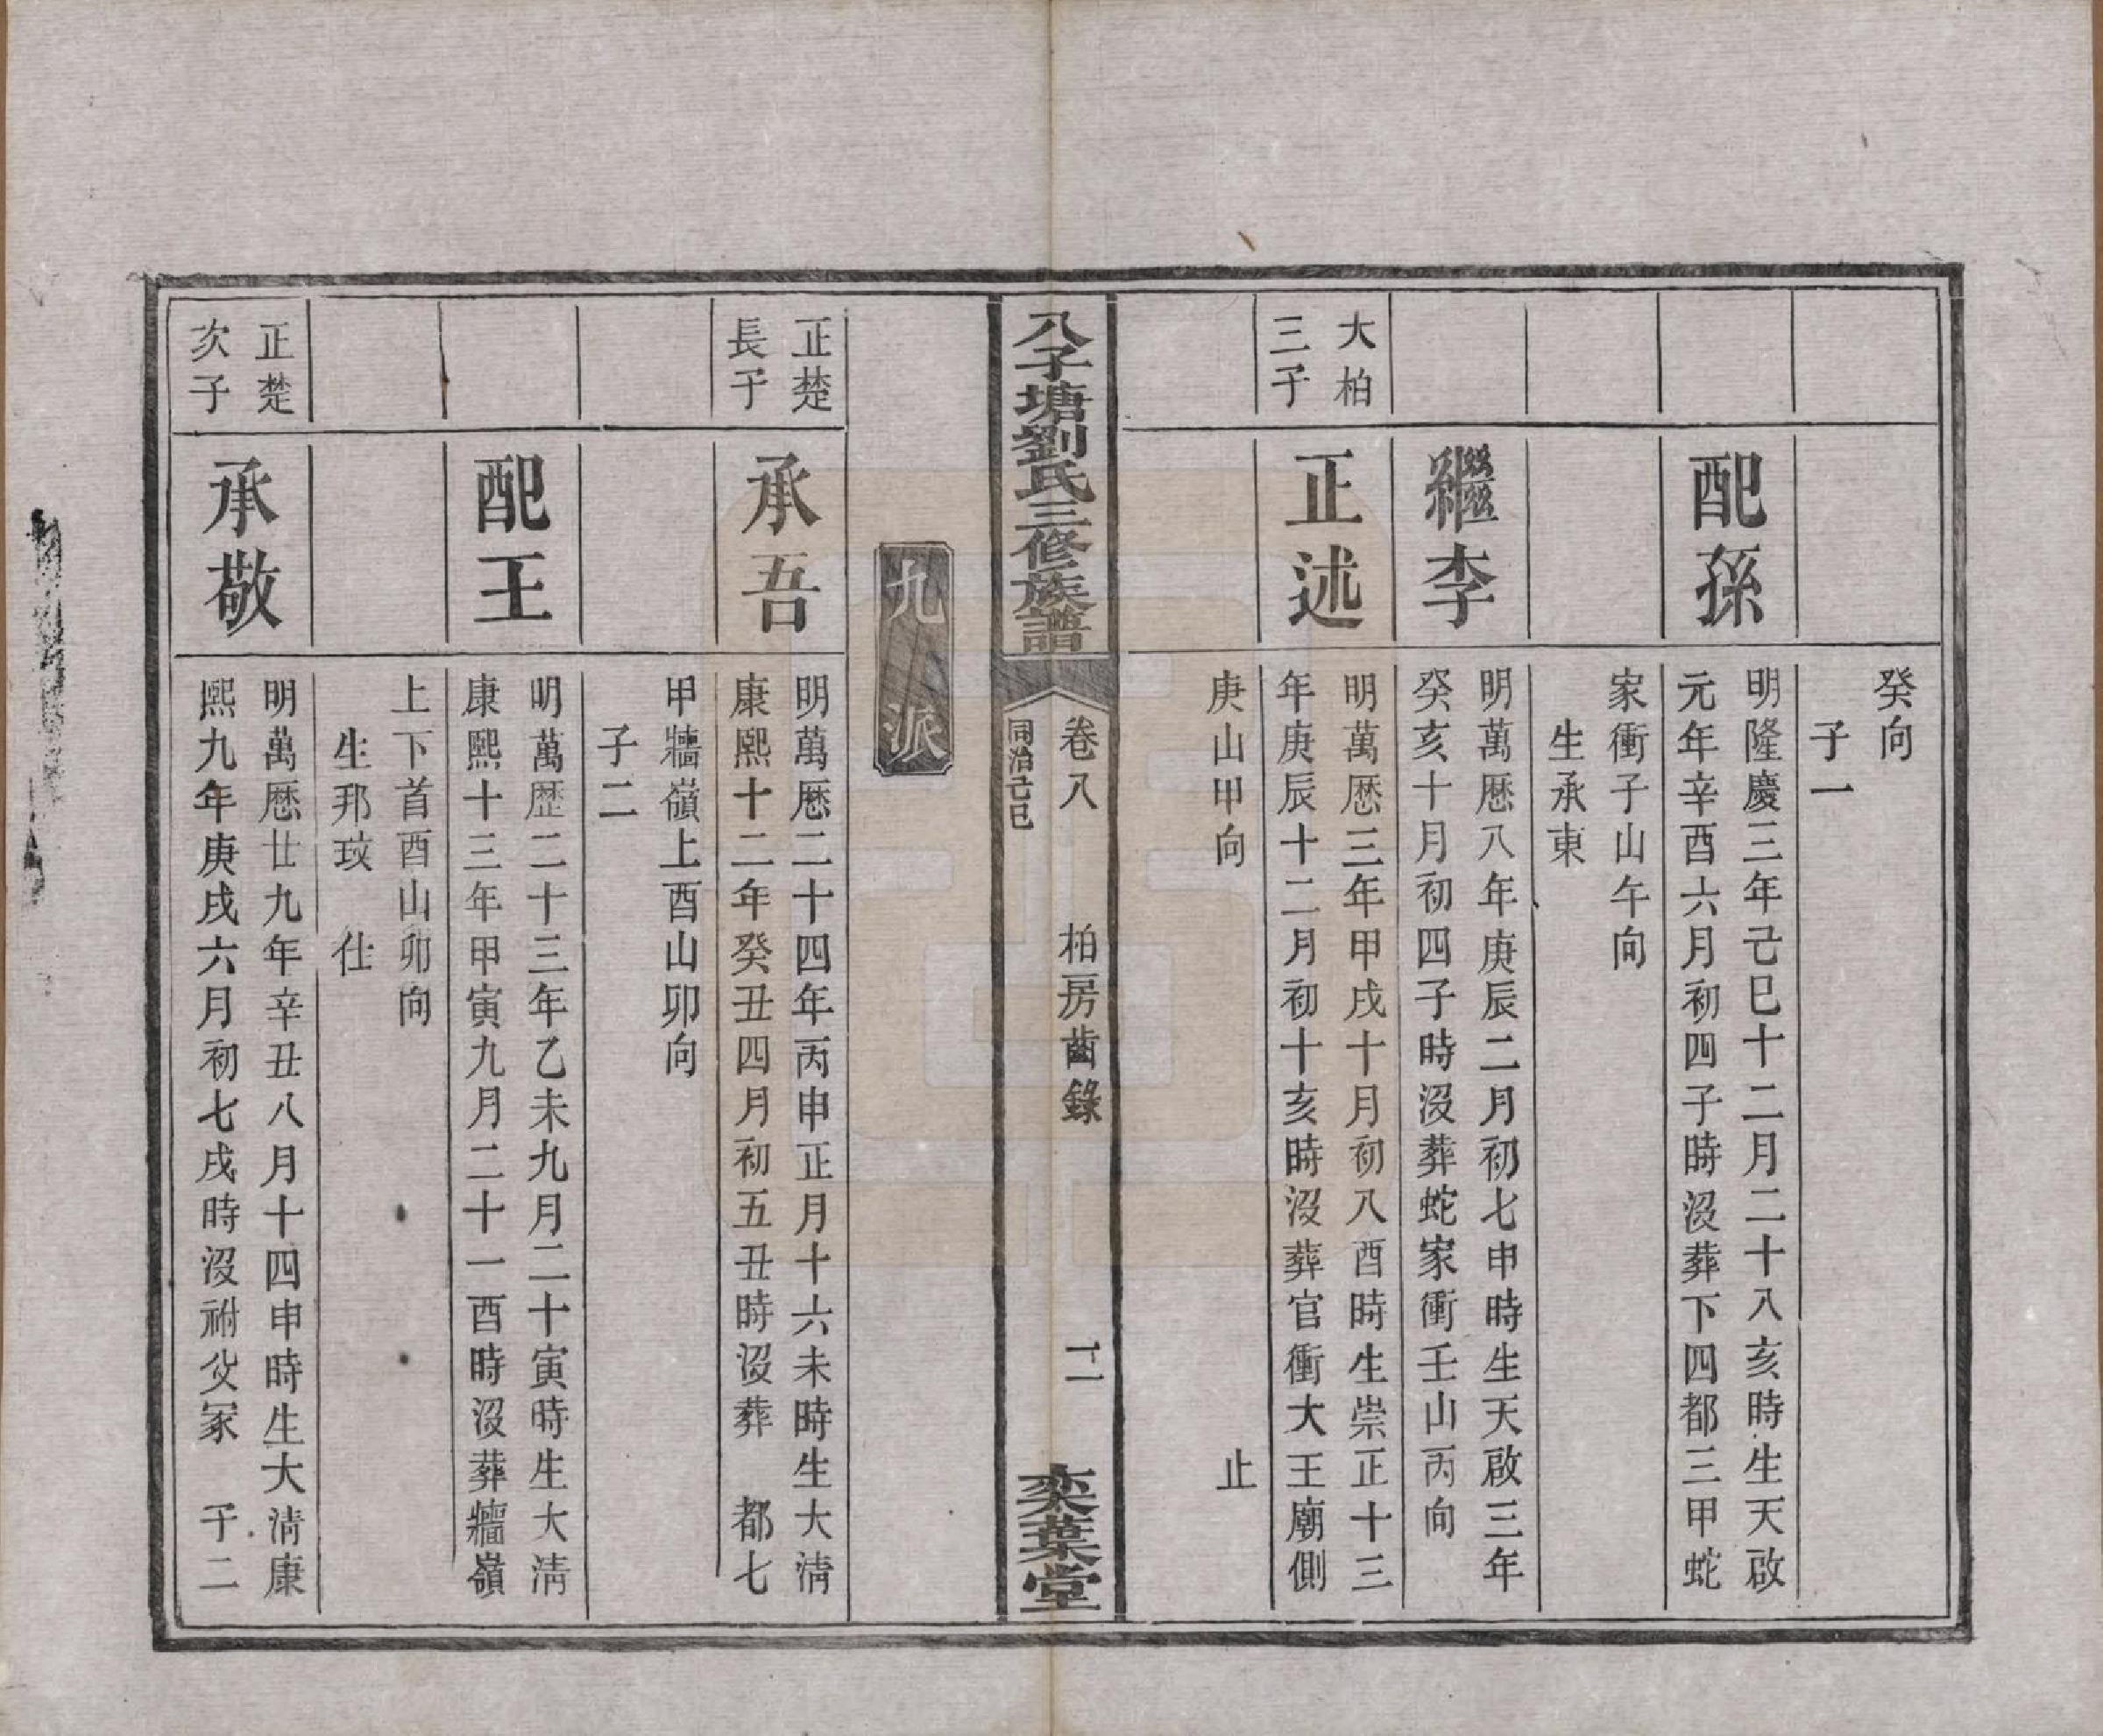 癸向
子一
配孫
明隆慶三年己巳十二月二十八亥時生天啟
元年辛酉六月初四子時沒葬下四都三甲蛇
家衝子山午向
生承東
繼李
明萬厯八年庚辰二月初七申時生天啟三年
癸亥十月初四子時沒葬蛇家衝壬山丙向
大柏
三子
正述
明萬厯三年甲戌十月初八酉時生崇正十三
年庚辰十二月初十亥時沒葬官衝大王廟側
庚山甲向
止
八子塘劉氏三修族譜
卷八
同治己巳
柏房齒錄
十二
奕葉堂
九派
正楚
長子
承吾
明萬厯二十四年丙申正月十六未時生大清
康熙十二年癸丑四月初五丑時沒葬 都七
甲牆嶺上酉山卯向
子二
配王
明萬歷二十三年乙未九月二十寅時生大清
康熙十三年甲寅九月二十一酉時沒葬牆嶺
上下首酉山卯向
生邦玟 仕
正楚
次子
承敬
明萬厯廿九年辛丑八月十四申時生大清康
熙九年庚戌六月初七戌時沒祔父冢 子二